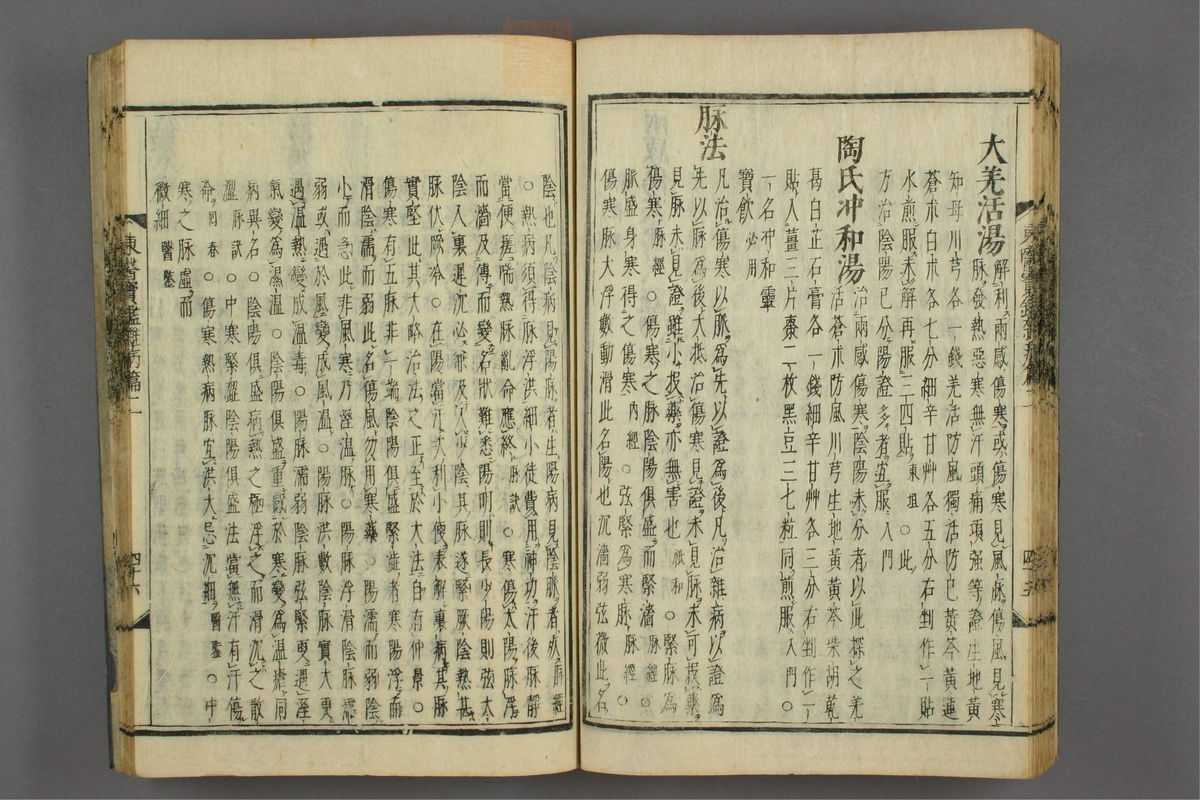 大羌活湯
解利兩感傷寒或傷寒見風脉傷風見寒
脉發熱惡寒無汗頭痛項强等證生地黃
知母川芎各一錢羌活防風獨活防己黃芩黃連
蒼朮白朮各七分細辛甘艸各五分右剉作一貼
水煎服未解再服三四貼 東垣 ○此
方治陰陽已分陽證多者宜服 入門
陶氏冲和湯
治兩感傷寒陰陽未分者以此探之羌
活蒼朮防風川芎生地黃黃芩柴胡乾
葛白芷石膏各一錢細辛甘艸各三分右剉作一
貼入薑三片棗二枚黑豆三七粒同煎服 入門 ○
一名冲和靈
寶飮 必用
脉法
凡治傷寒以脉爲先以證爲後凡治雜病以證爲
先以脉爲後大抵治傷寒見證未見脉未可投藥
見脉未見證雖小投藥亦無害也 祗和 ○緊脉爲
傷寒 脉經 ○傷寒之脉陰陽俱盛而緊濇 脉經 ○
脉盛身寒得之傷寒 內經 ○弦緊爲寒脉 脉經 ○
傷寒脉大浮數動滑此名陽也沉濇弱弦微此名
陰也凡陰病見陽脉者生陽病見陰脉者死 脉經
○凡熱病須得脉浮洪細小徒費用神功汗後脉靜
當便瘥喘熱脉亂命應終 脉訣 ○寒傷太陽脉浮
而濇及傳而變名狀難悉陽明則長少陽則弦太
陰入裏遲沉必兼及入少陰其脉遂緊厥陰熱甚
脉伏厥冷○在陽當汗次利小便表解裏病其脉
實堅此其大略治法之正至於大法自有仲景○
傷寒有五脉非一端陰陽俱盛緊澁者寒陽浮而
滑陰濡而弱此名傷風勿用寒藥○陽濡而弱陰
小而急此非風寒乃溼溫脉○陽脉浮滑陰脉濡
弱或遇於風變成風溫○陽脉洪數陰脉實大更
遇溫熱變成溫毒○陽脉濡弱陰脉弦緊更遇溼
氣變爲濕溫○陰陽俱盛重感於寒變爲溫瘧同
病異名○陰陽俱盛病熱之極浮之而滑沉之散
澁 脉訣 ○中寒緊澁陰陽俱盛法當無汗有汗傷
命 回春 ○傷寒熱病脉宜洪大忌沉細 醫鑒 ○中
寒之脉虛而
微細 醫鑒
東醫寶鑑雜病篇二
四十六